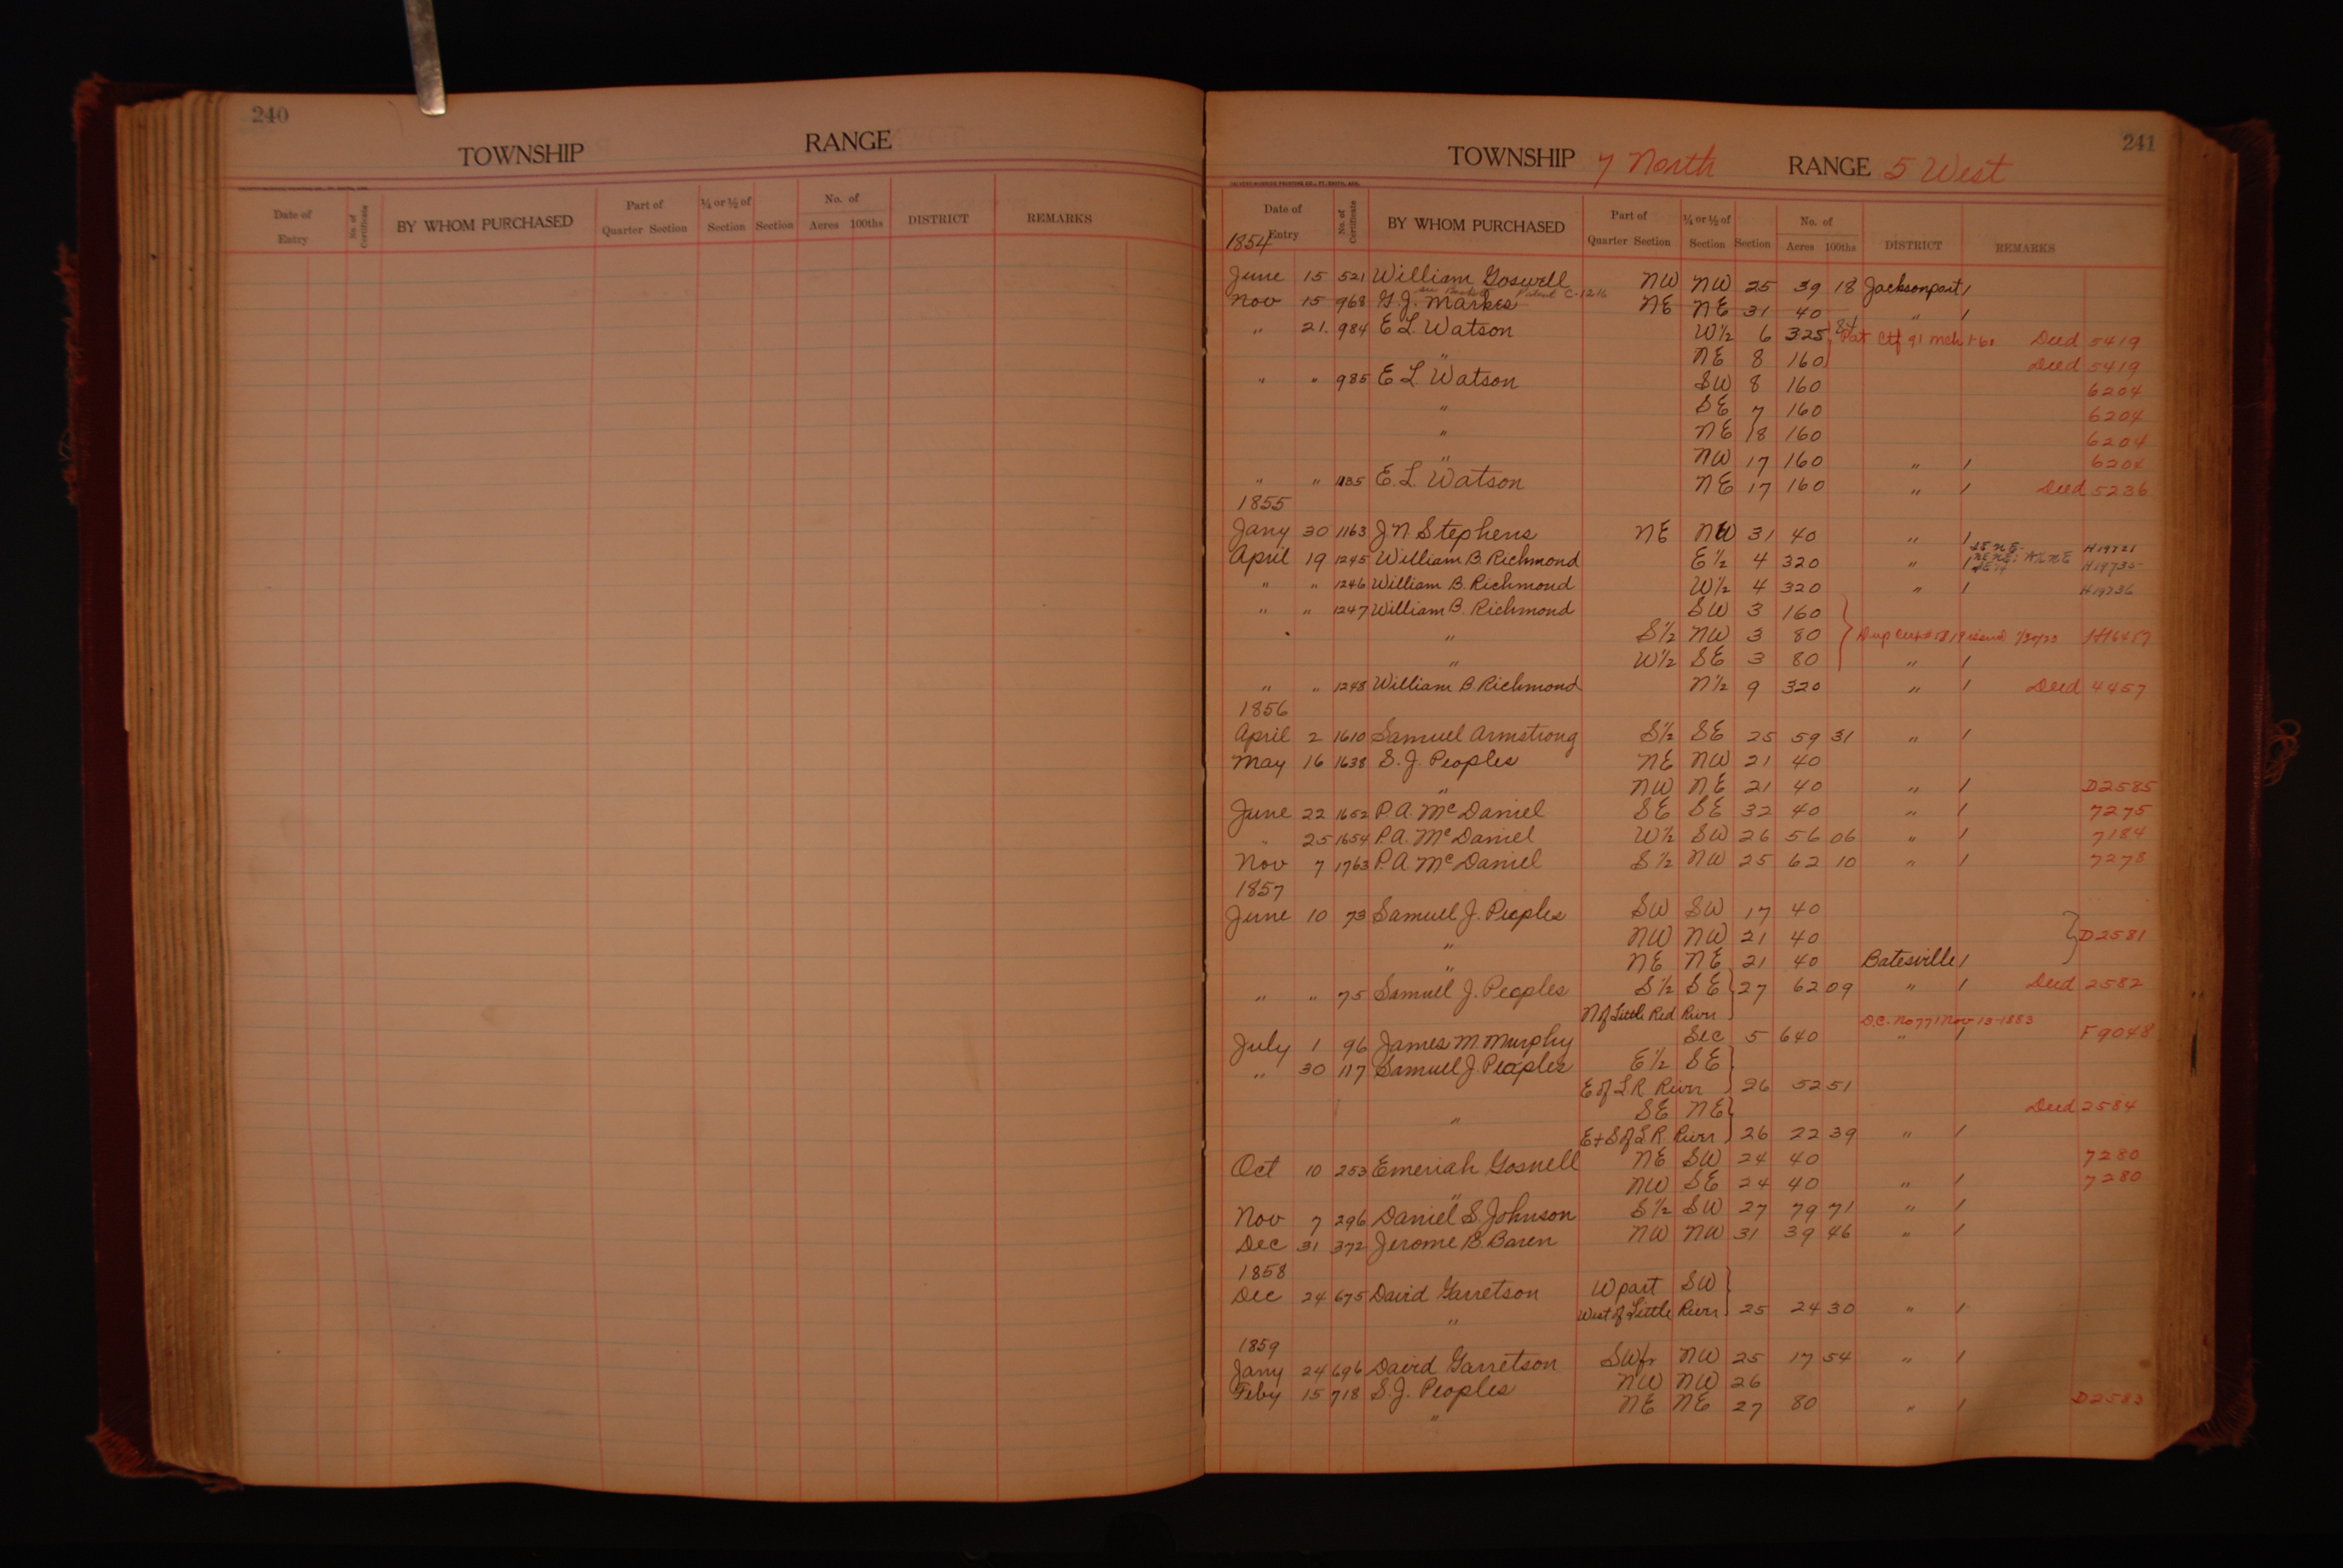 240
TOWNSHIP RANGE
Date of Entry No. of Certificate BY WHOM PURCHASED Part of Quarter Section ¼ or ½ of Section Section No. of Acres 100ths DISTRICT REMARKS
241
TOWNSHIP 7 North RANGE 5 West
Date of Entry No. of Certificate BY WHOM PURCHASED Part of Quarter Section ¼ or ½ of Section Section No. of Acres 100ths DISTRICT REMARKS
1854
June 15 521 William Goswell NW NW 25 39 18 Jacksonport /
Patent C-1216
Nov 15 968 G. J. Markes NE NE 31 40 " /
" 21. 984 E L Watson W½ 6 325 84 Pat Ctf 91 Mch 1-61 Deed 5419
" NE 8 160 Deed 5419
" " 985 E L Watson SW 8 160 6204
" SE 7 160 6204
" NE 18 160 6204
" NW 17 160 " / 6204
" " 1135 E. L. Watson NE 17 160 " / Deed 5236
1855
Jany 30 1163 J. N. Stephens NE NW 31 40 " /
April 19 1245 William B. Richmond E½ 4 320 " / SE NE H19721
H19735
" " 1246 William B. Richmond W½ 4 320 " / H19736
" " 1247 William B. Richmond SW 3 160
" S½ NW 3 80 issued 1/30/22 H16457
" W½ SE 3 80 " /
" " 1248 William B. Richmond N½ 9 320 " / Deed 4457
1856
April 2 1610 Samuel Armstrong S½ SE 25 59 31 " /
May 16 1638 S. J. Peoples NE NW 21 40
" NW NE 21 40 " / D2585
June 22 1652 P. A. McDaniel SE SE 32 40 " / 7275
" 25 1654 P. A. McDaniel W½ SW 26 56 06 " / 7184
Nov 7 1763 P. A. McDaniel S½ NW 25 62 10 " / 7278
1857
June 10 73 Samuel J. Peoples SW SW 17 40
" NW NW 21 40 D2581
" NE NE 21 40 Batesville /
" " 75 Samuel J. Peoples S½ SE 27 62 09 " / Deed 2582
N of Little Red River
D.C. No 771 Nov-13-1883
July 1 96 James M. Murphy Sec 5 640 " / F9048
" 30 117 Samuel J. Peoples E½ SE
E of L R River 26 52 51
" SE NE Deed 2584
E+S of L R. River 26 22 39 " /
Oct 10 253 Emeriah Gosnell NE SW 24 40 7280
" NW SE 24 40 " / 7280
Nov 7 296 Daniel S. Johnson S½ SW 27 79 71 " /
Dec 31 372 Jerome B. Baren NW NW 31 39 46 " /
1858
Dec 24 675 David Garretson W part SW
" West of Little River 25 24 30 " /
1859
Jany 24 696 David Garretson SWfr NW 25 17 54 " /
Feby 15 718 S. J. Peoples NW NW 26
" NE NE 27 80 " / D2583